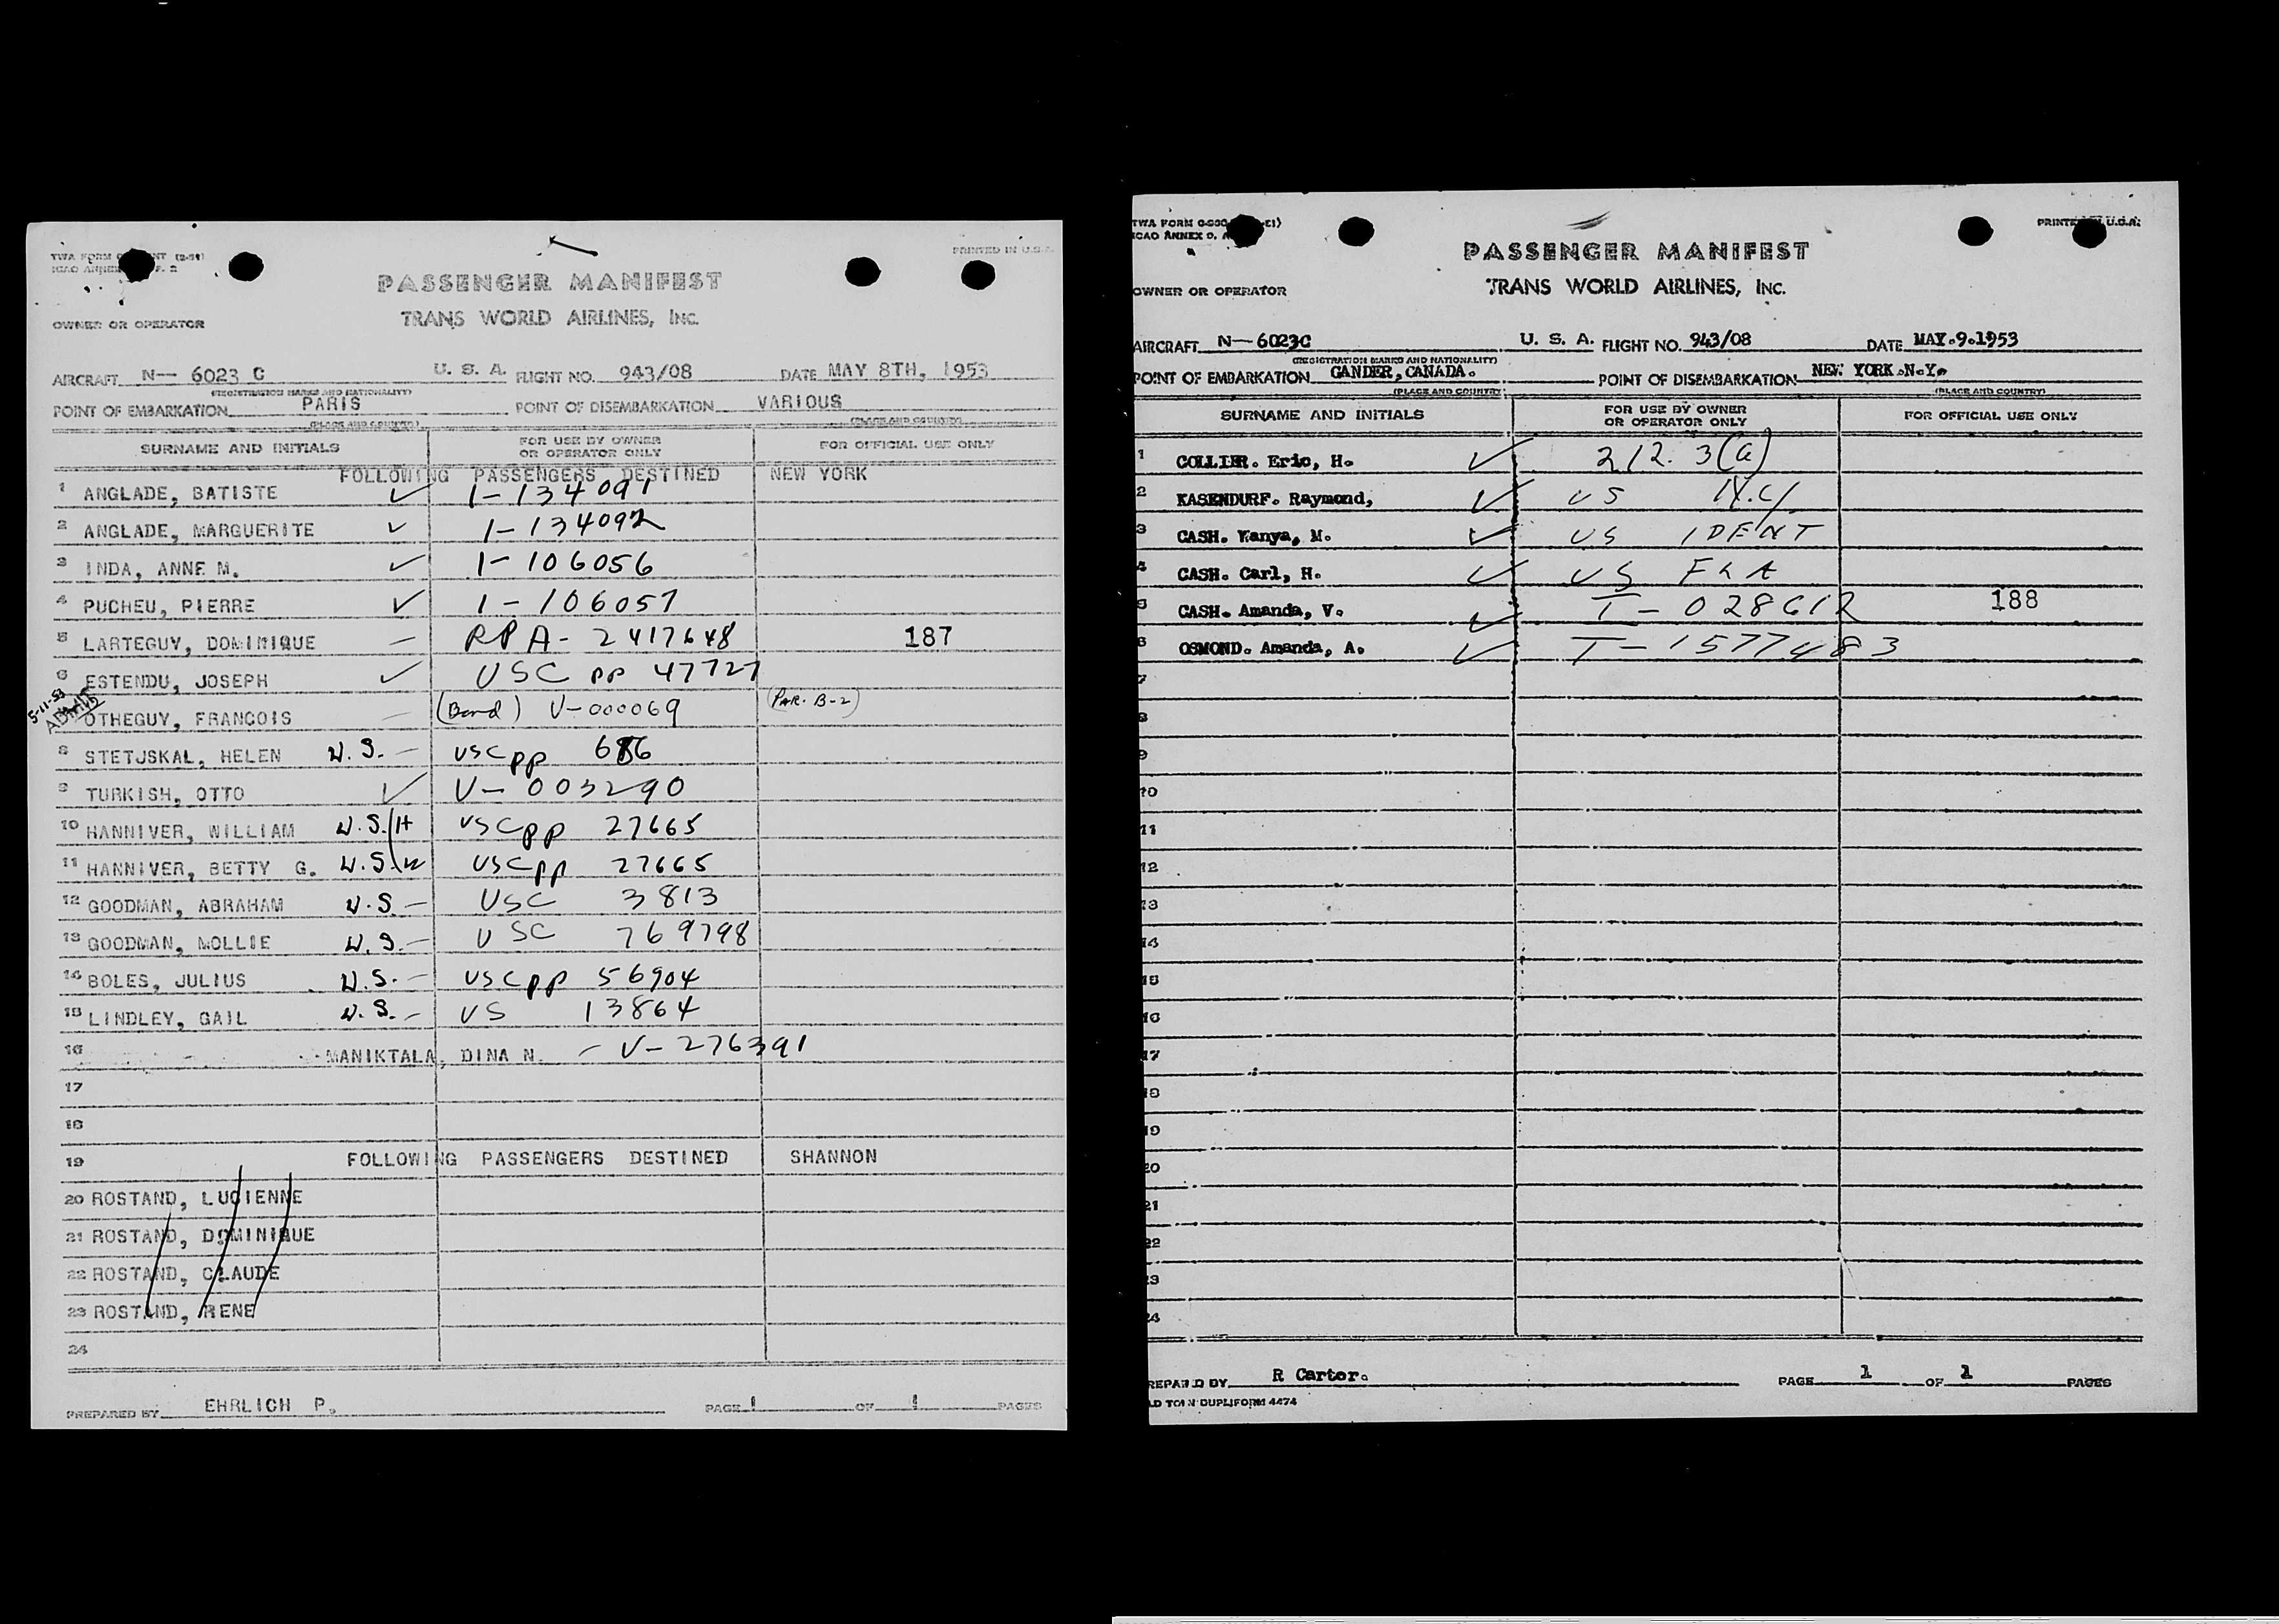 PRINTED IN U.S.A.
PASSENGER MANIFEST
TRANS WORLD AIRLINES, INC.
OWNER OR OPERATOR
AIRCRAFT N— 6023 C U. S. A. FLIGHT NO. 943/08 DATE MAY 8TH, 1953
(REGISTRATION MARKS AND NATIONALITY)
POINT OF EMBARKATION PARIS POINT OF DISEMBARKATION VARIOUS
(PLACE AND COUNTRY) (PLACE AND COUNTRY)
SURNAME AND INITIALS FOR USE BY OWNER OR OPERATOR ONLY FOR OFFICIAL USE ONLY
FOLLOWING PASSENGERS DESTINED NEW YORK
1 ANGLADE, BATISTE ✓ 1-134091
2 ANGLADE, MARGUERITE ✓ 1-134092
3 INDA, ANNE M. ✓ 1-106056
4 PUCHEU, PIERRE ✓ 1-106057
5 LARTEGUY, DOMINIQUE — RPA-2417648 187
6 ESTENDU, JOSEPH ✓ USC pp 47727
5-11-53
OTHEGUY, FRANCOIS — (Bond) V-000069 (PAR. B-2)
8 STETJSKAL, HELEN U.S. — USC pp 686
9 TURKISH, OTTO ✓ V-003290
10 HANNIVER, WILLIAM U.S. H USC pp 27665
11 HANNIVER, BETTY G. U.S. W USC pp 27665
12 GOODMAN, ABRAHAM U.S. — USC 3813
13 GOODMAN, MOLLIE U.S. — USC 769798
14 BOLES, JULIUS U.S. — USC pp 56904
15 LINDLEY, GAIL U.S. — US 13864
16 MANIKTALA, DINA N. — V-276391
17
18
19 FOLLOWING PASSENGERS DESTINED SHANNON
20 ROSTAND, LUCIENNE
21 ROSTAND, DOMINIQUE
22 ROSTAND, CLAUDE
23 ROSTAND, RENE
24
PREPARED BY EHRLICH P. PAGE 1 OF 1 PAGES
TWA FORM
ICAO ANNEX 9,
PRINTED IN U.S.A.
PASSENGER MANIFEST
TRANS WORLD AIRLINES, INC.
OWNER OR OPERATOR
AIRCRAFT N—6023C U. S. A. FLIGHT NO. 943/08 DATE MAY.9.1953
(REGISTRATION MARKS AND NATIONALITY)
POINT OF EMBARKATION GANDER, CANADA. POINT OF DISEMBARKATION NEW YORK.N.Y.
(PLACE AND COUNTRY) (PLACE AND COUNTRY)
SURNAME AND INITIALS FOR USE BY OWNER OR OPERATOR ONLY FOR OFFICIAL USE ONLY
1 COLLIER. Eric, H. ✓ 212.3(a)
2 KASENDURF. Raymond, ✓ US
3 CASH. Wanya, M. ✓ US IDENT
4 CASH. Carl, H. ✓ US
5 CASH. Amanda, V. ✓ T-028612 188
6 OSMOND. Amanda, A. ✓ T-1577483
7
8
9
10
11
12
13
14
15
16
17
18
19
20
21
22
23
24
PREPARED BY R Carter. PAGE 1 OF 1 PAGES
DUPLIFORM 4474